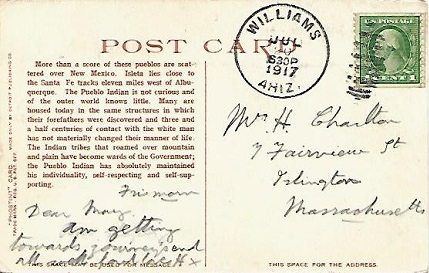 POST CARD
WILLIAMS
JUL
630P
1917
ARIZ.
U.S.POSTAGE
1 CENT 1
More than a score of these pueblos are scat-
tered over New Mexico. Isleta lies close to
the Santa Fe tracks eleven miles west of Albu-
querque. The Pueblo Indian is not curious and
of the outer world knows little. Many are
housed today in the same structures in which
their forefathers were discovered and three and
a half centuries of contact with the white man
has not materially changed their manner of life.
The Indian tribes that roamed over mountain
and plain have become wards of the Government;
the Pueblo Indian has absolutely maintained
his individuality, self-respecting and self-sup-
porting.
"PHOSTINT" CARD
MADE ONLY BY DETROIT PUBLISHING CO.
Dear Mary.
am getting
towards journeys end
all well
THIS SPACE MAY BE USED FOR MESSAGE
Mrs H. Charlton
7 Fairview St
Islington
Massachusetts
THIS SPACE FOR THE ADDRESS.